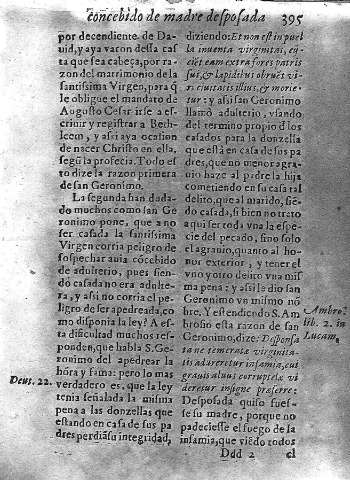 concebido de madre desposada 395
por decendiente de Da-
uid, y aya varon dessa cas
ta que sea cabeça, por ra-
zon del matrimonio de la
santissima Virgen, para q̃
le obligue el mandato de
Augusto Cesar irse a es-
criuir y registrar a Beth-
leem, y assi aya ocasion
de nacer Christo en ella,
segũ la profecia. Todo es
to dize la razon primera
de san Geronimo.
La segunda han duda-
do muchos como san Ge
ronimo pone, que a no
ser casada la santissima
Virgen corria peligro de
sospechar auia cõcebido
de adulterio, pues sien-
do casada no era adulte-
ra, y assi no corria el peli-
gro de ser apedreada, co
mo disponia la ley? A es-
ta dificultad muchos res-
ponden, que habla S. Ge-
ronimo del apedrear la
hõra y fama: pero lo mas
verdadero es, que la ley
tenia señalada la misma
pena a las donzellas que
estando en casa de sus pa
dres perdiã su integridad,
Deut. 22.
diziendo: Et non est in puel
la inuenta virginitas, eij-
cient eam extra fores patris
sui, & lapidibus obruẽt vi-
ri ciuitatis illius, & morie-
tur: y assi san Geronimo
llamò adulterio, vsando
del termino propio d̃ los
casados para la donzella
que està en casa de sus pa
dres, que no menor agra-
uio haze al padre la hija
cometiendo en su casa tal
delito, que al marido, siẽ-
do casada, si bien no trato
aqui ser toda vna la espe-
cie del pecado, sino solo
el agrauio, quanto al ho-
nor exterior, y tener el
vno y otro delito vna mis
ma pena: y assi le dio san
Geronimo vn mismo nõ-
bre. Y estendiendo S. Am
brosio esta razon de san
Geronimo, dize: Desponsa
ta ne temeratæ virginita-
tis adureretur infamia, cui
grauis aluus corruptelæ vi
deretur insigne præferre:
Desposada quiso fues-
se su madre, porque no
padeciesse el fuego de la
infamia, que viẽdo todos
Ambro.
lib. 2. in
Lucam.
Ddd 2 el